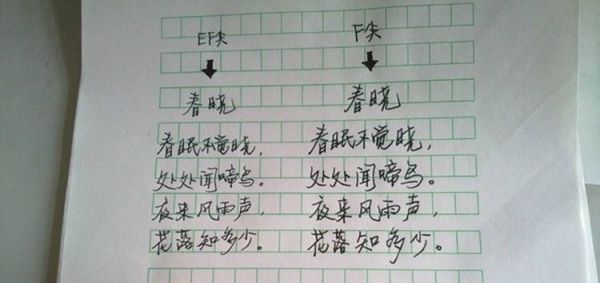 EF尖 F尖
↓ ↓
春晓 春晓
春眠不觉晓， 春眠不觉晓，
处处闻啼鸟。 处处闻啼鸟。
夜来风雨声， 夜来风雨声，
花落知多少。 花落知多少。